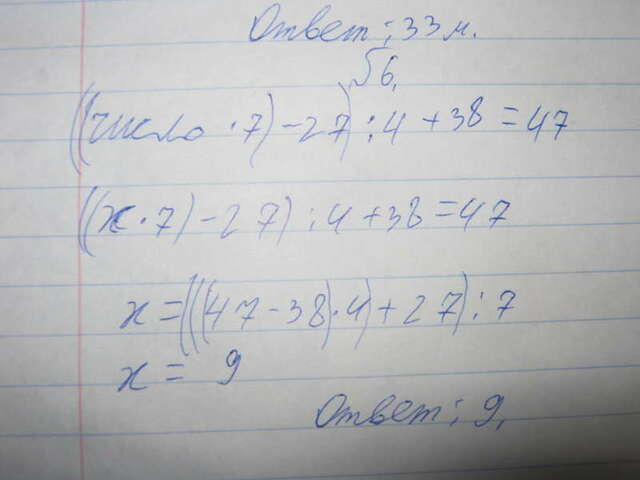 Ответ: 33 м.
√6.
((число · 7) - 27) : 4 + 38 = 47
((x · 7) - 27) : 4 + 38 = 47
x = (((47 - 38) · 4) + 27) : 7
x = 9
Ответ: 9.